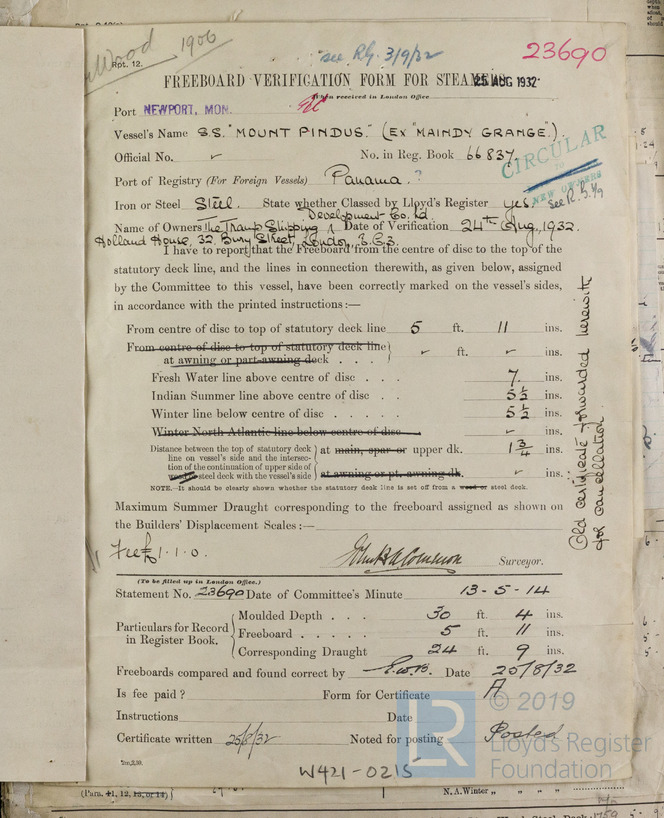 Wood 1906
Rot. 12.
see R.G. 3/9/32
23690
FREEBOARD VERIFICATION FORM FOR STEAMERS
25 AUG 1932
When received in London Office
Port NEWPORT, MON.
Vessel's Name S.S. "MOUNT PINDUS." (EX "MAINDY GRANGE").
Official No. No. in Reg. Book 66837
CIRCULAR
TO
NEW OWNERS
Port of Registry (For Foreign Vessels) Panama.?
Iron or Steel Steel. State whether Classed by Lloyd's Register yes.
Development Co. Ld
Name of Owners The Tramp Shipping Date of Verification 24th Aug, 1932.
Holland House, 32, Bury Street, London, E.C.3.
I have to report that the Freeboard from the centre of disc to the top of the
statutory deck line, and the lines in connection therewith, as given below, assigned
by the Committee to this vessel, have been correctly marked on the vessel's sides,
in accordance with the printed instructions:—
From centre of disc to top of statutory deck line 5 ft. 11 ins.
From centre of disc to top of statutory deck line
at awning or part-awning deck . . . ft. ins.
Fresh Water line above centre of disc . . . 7. ins.
Indian Summer line above centre of disc . . 5½ ins.
Winter line below centre of disc . . . . . 5½ ins.
Winter North Atlantic line below centre of disc ins.
Distance between the top of statutory deck
line on vessel's side and the intersec-
tion of the continuation of upper side of
wood or steel deck with the vessel's side
at main, spar or upper dk. 1¾ ins.
at awning or pt. awning dk. ins.
NOTE.—It should be clearly shown whether the statutory deck line is set off from a wood or steel deck.
Old certificate forwarded herewith
for cancellation
Maximum Summer Draught corresponding to the freeboard assigned as shown on
the Builders' Displacement Scales:—
Fee £1.1.0.
Surveyor.
(To be filled up in London Office.)
Statement No. 23690 Date of Committee's Minute 13-5-14
Particulars for Record
in Register Book.
Moulded Depth . . . 30 ft. 4 ins.
Freeboard . . . . . 5 ft. 11 ins.
Corresponding Draught 24 ft. 9 ins.
Freeboards compared and found correct by E.W.B. Date 25/8/32
Is fee paid? Form for Certificate A
Instructions Date
Certificate written 25/8/32 Noted for posting Posted
W421-0215
LR
© 2019
Lloyd's Register
Foundation
N.A. Winter